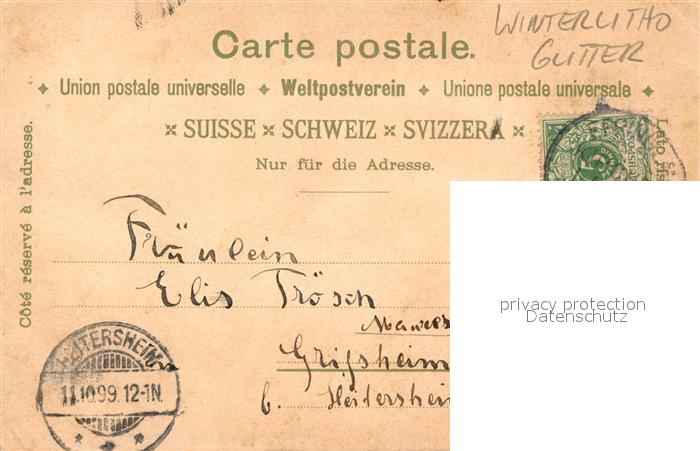 WINTERLITHO
GLITTER
Carte postale.
Union postale universelle Weltpostverein Unione postale universale
SUISSE SCHWEIZ SVIZZERA
Nur für die Adresse.
Côté réservé à l'adresse.
Lato ris
5
Fräulein
Elis Trösch
Grißheim
b. Heitershei
11.10.99.12-1N.
privacy protection
Datenschutz